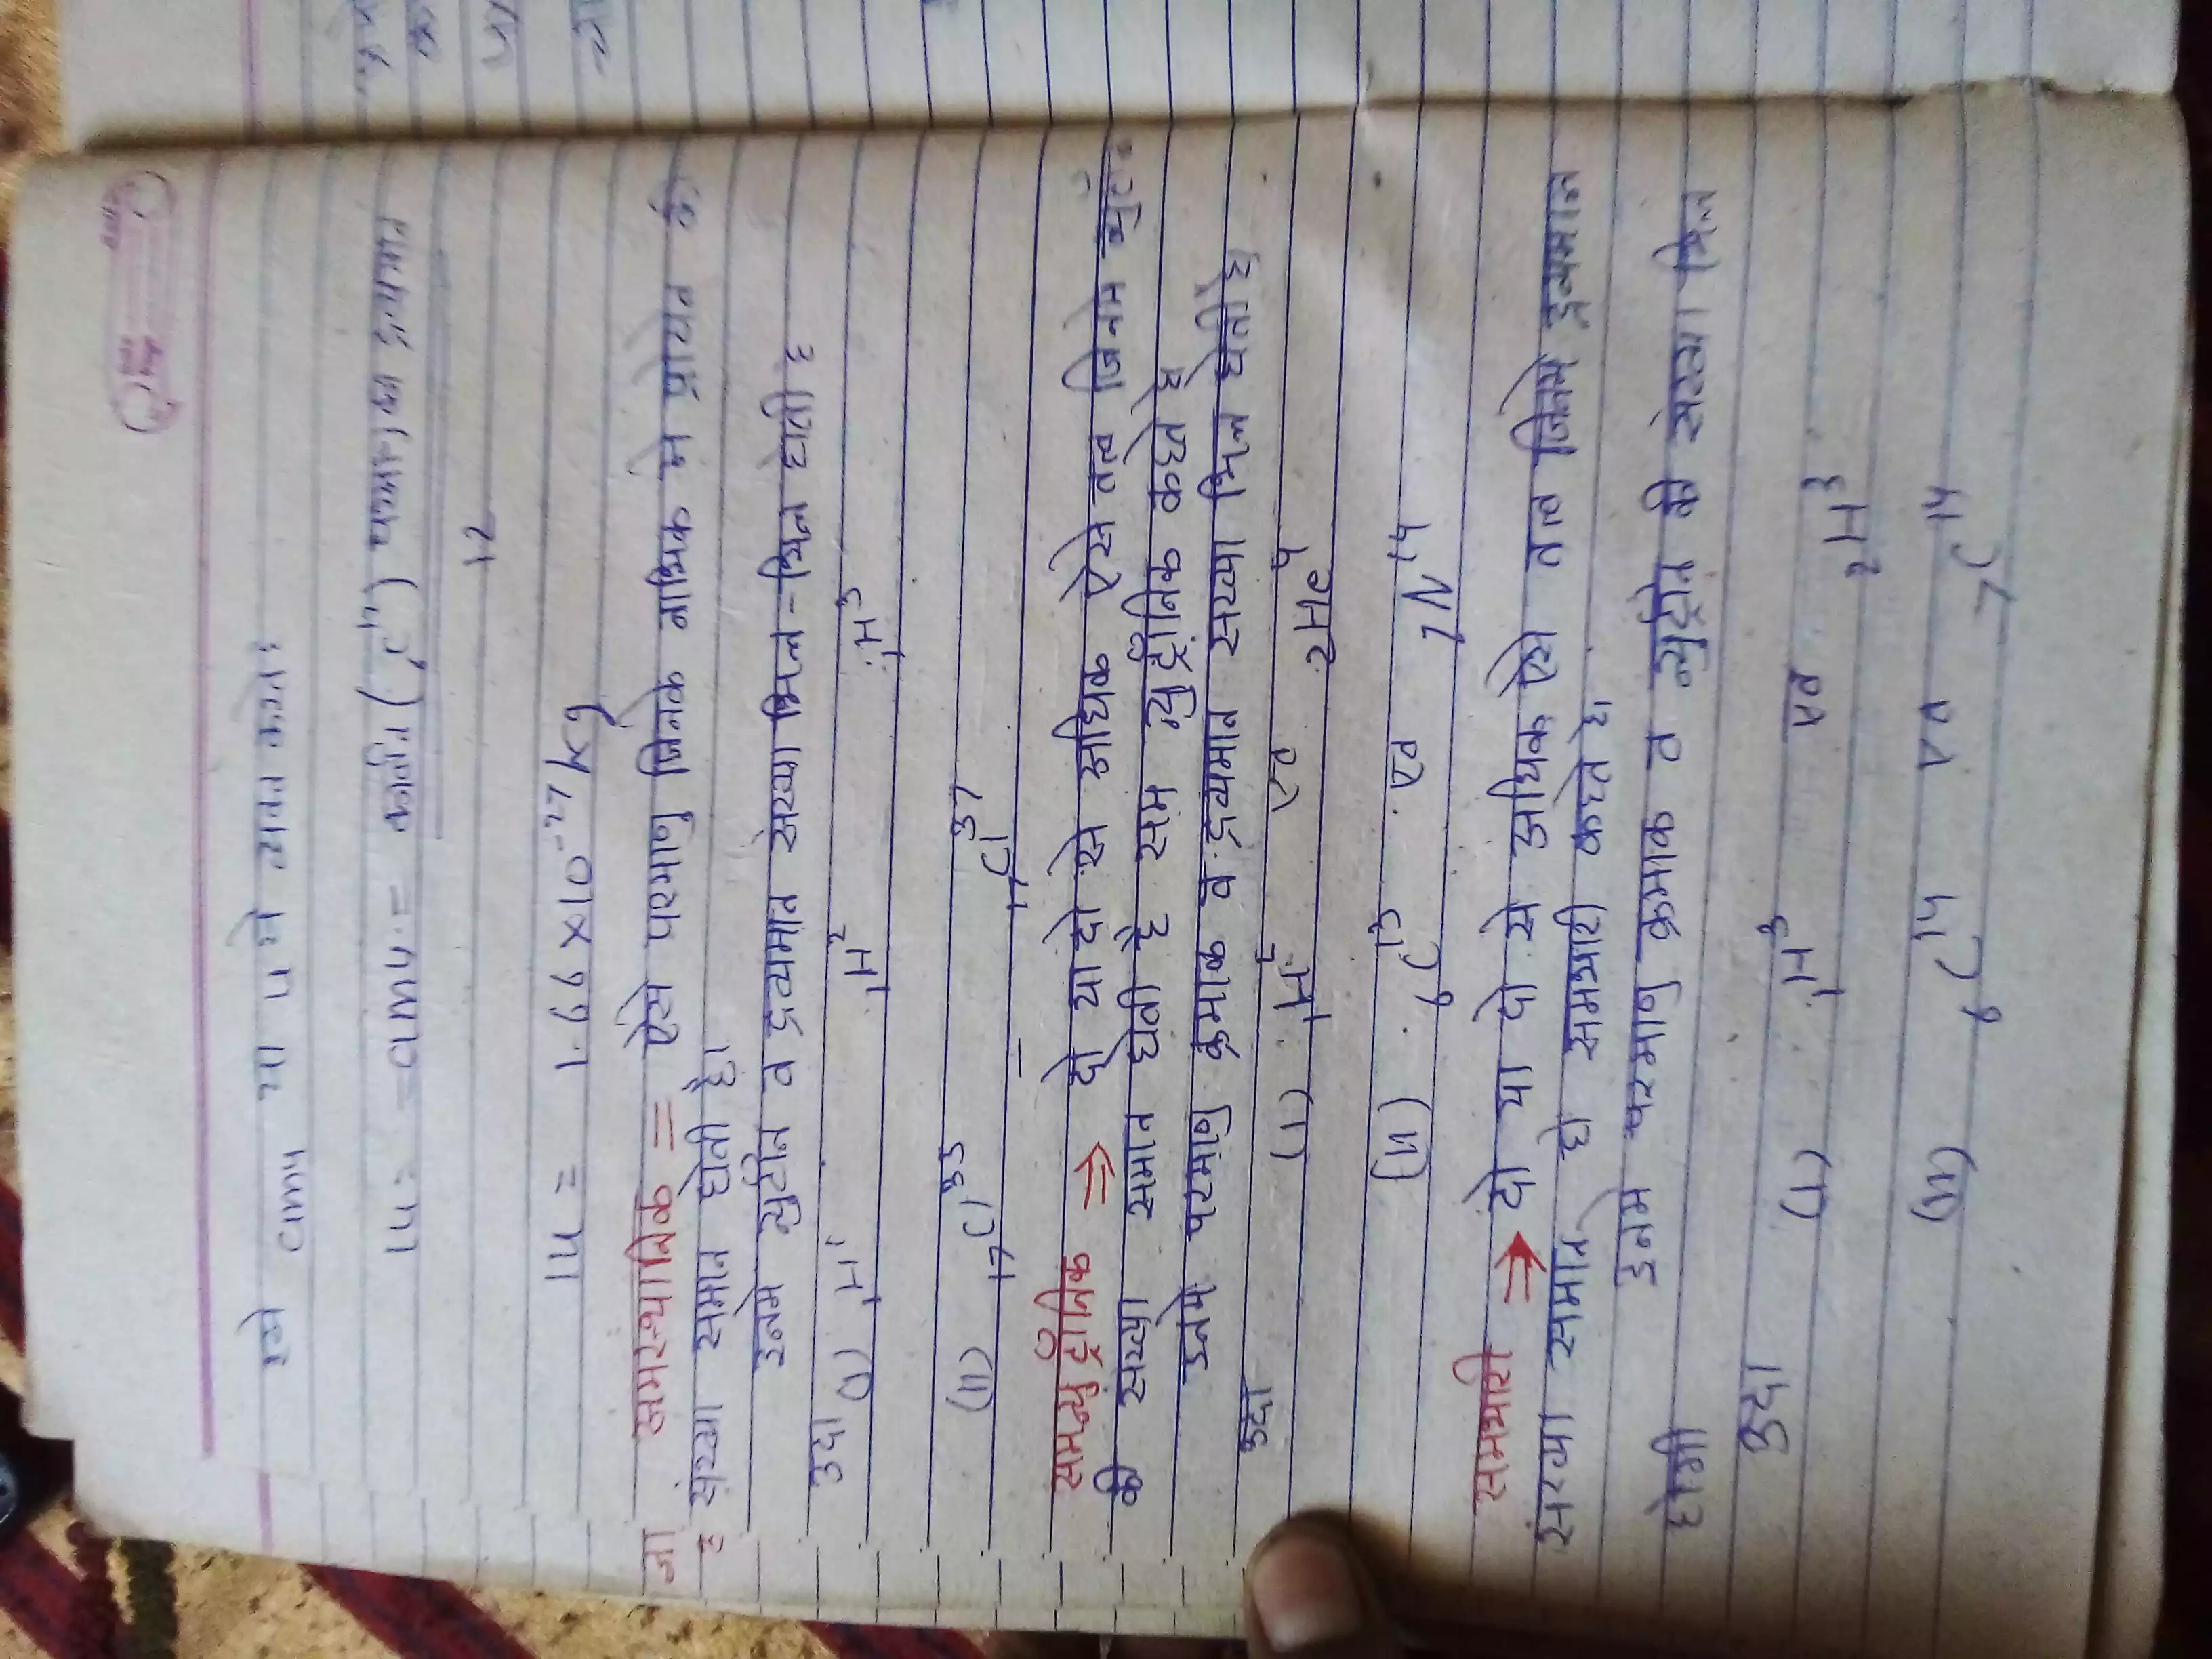 इसे amu या u मे व्यक्त करते
1u = amu = कार्बन (₆C¹²) परमाणु का द्रव्यमान
12
1u = 1.99 × 10⁻²⁷ kg
समस्थानिक = ऐसे परमाणु जिनके नाभिक मे प्रोटान की
संख्या समान होती है।
इनमे न्युर्टान व द्रव्यमान संख्या भिन्न-भिन्न होती है
उदा (i) ₁H¹ ₁H² ₁H³
(ii) ₁₇Cl³⁵ ₁₇Cl³⁷
समन्युट्रॉनिक ⇒ दो या दो से अधिक ऐसे तत्व जिनमे
की सख्या समान होती है सम न्युट्रॉनिक कहते है
इनमे परमाणु क्रमाक व द्रव्यमान सख्या भिन्न होती है
उदा
(i) ₁H एव ₂He⁴
(ii) ₆C¹³ एव ₇N¹⁴
समभारी ⇒ दो या दो से अधिक ऐसे तत्व जिनमे द्रव्यमान
संख्या सामान हो समभारी कहते है।
इनमे परमाणु क्रमाक व न्युट्रोन की संख्या भिन्न
होगी
उदा
(i) ₁H³ एव ₂H³
(ii) ₆C¹⁴ एव ₇C¹⁴